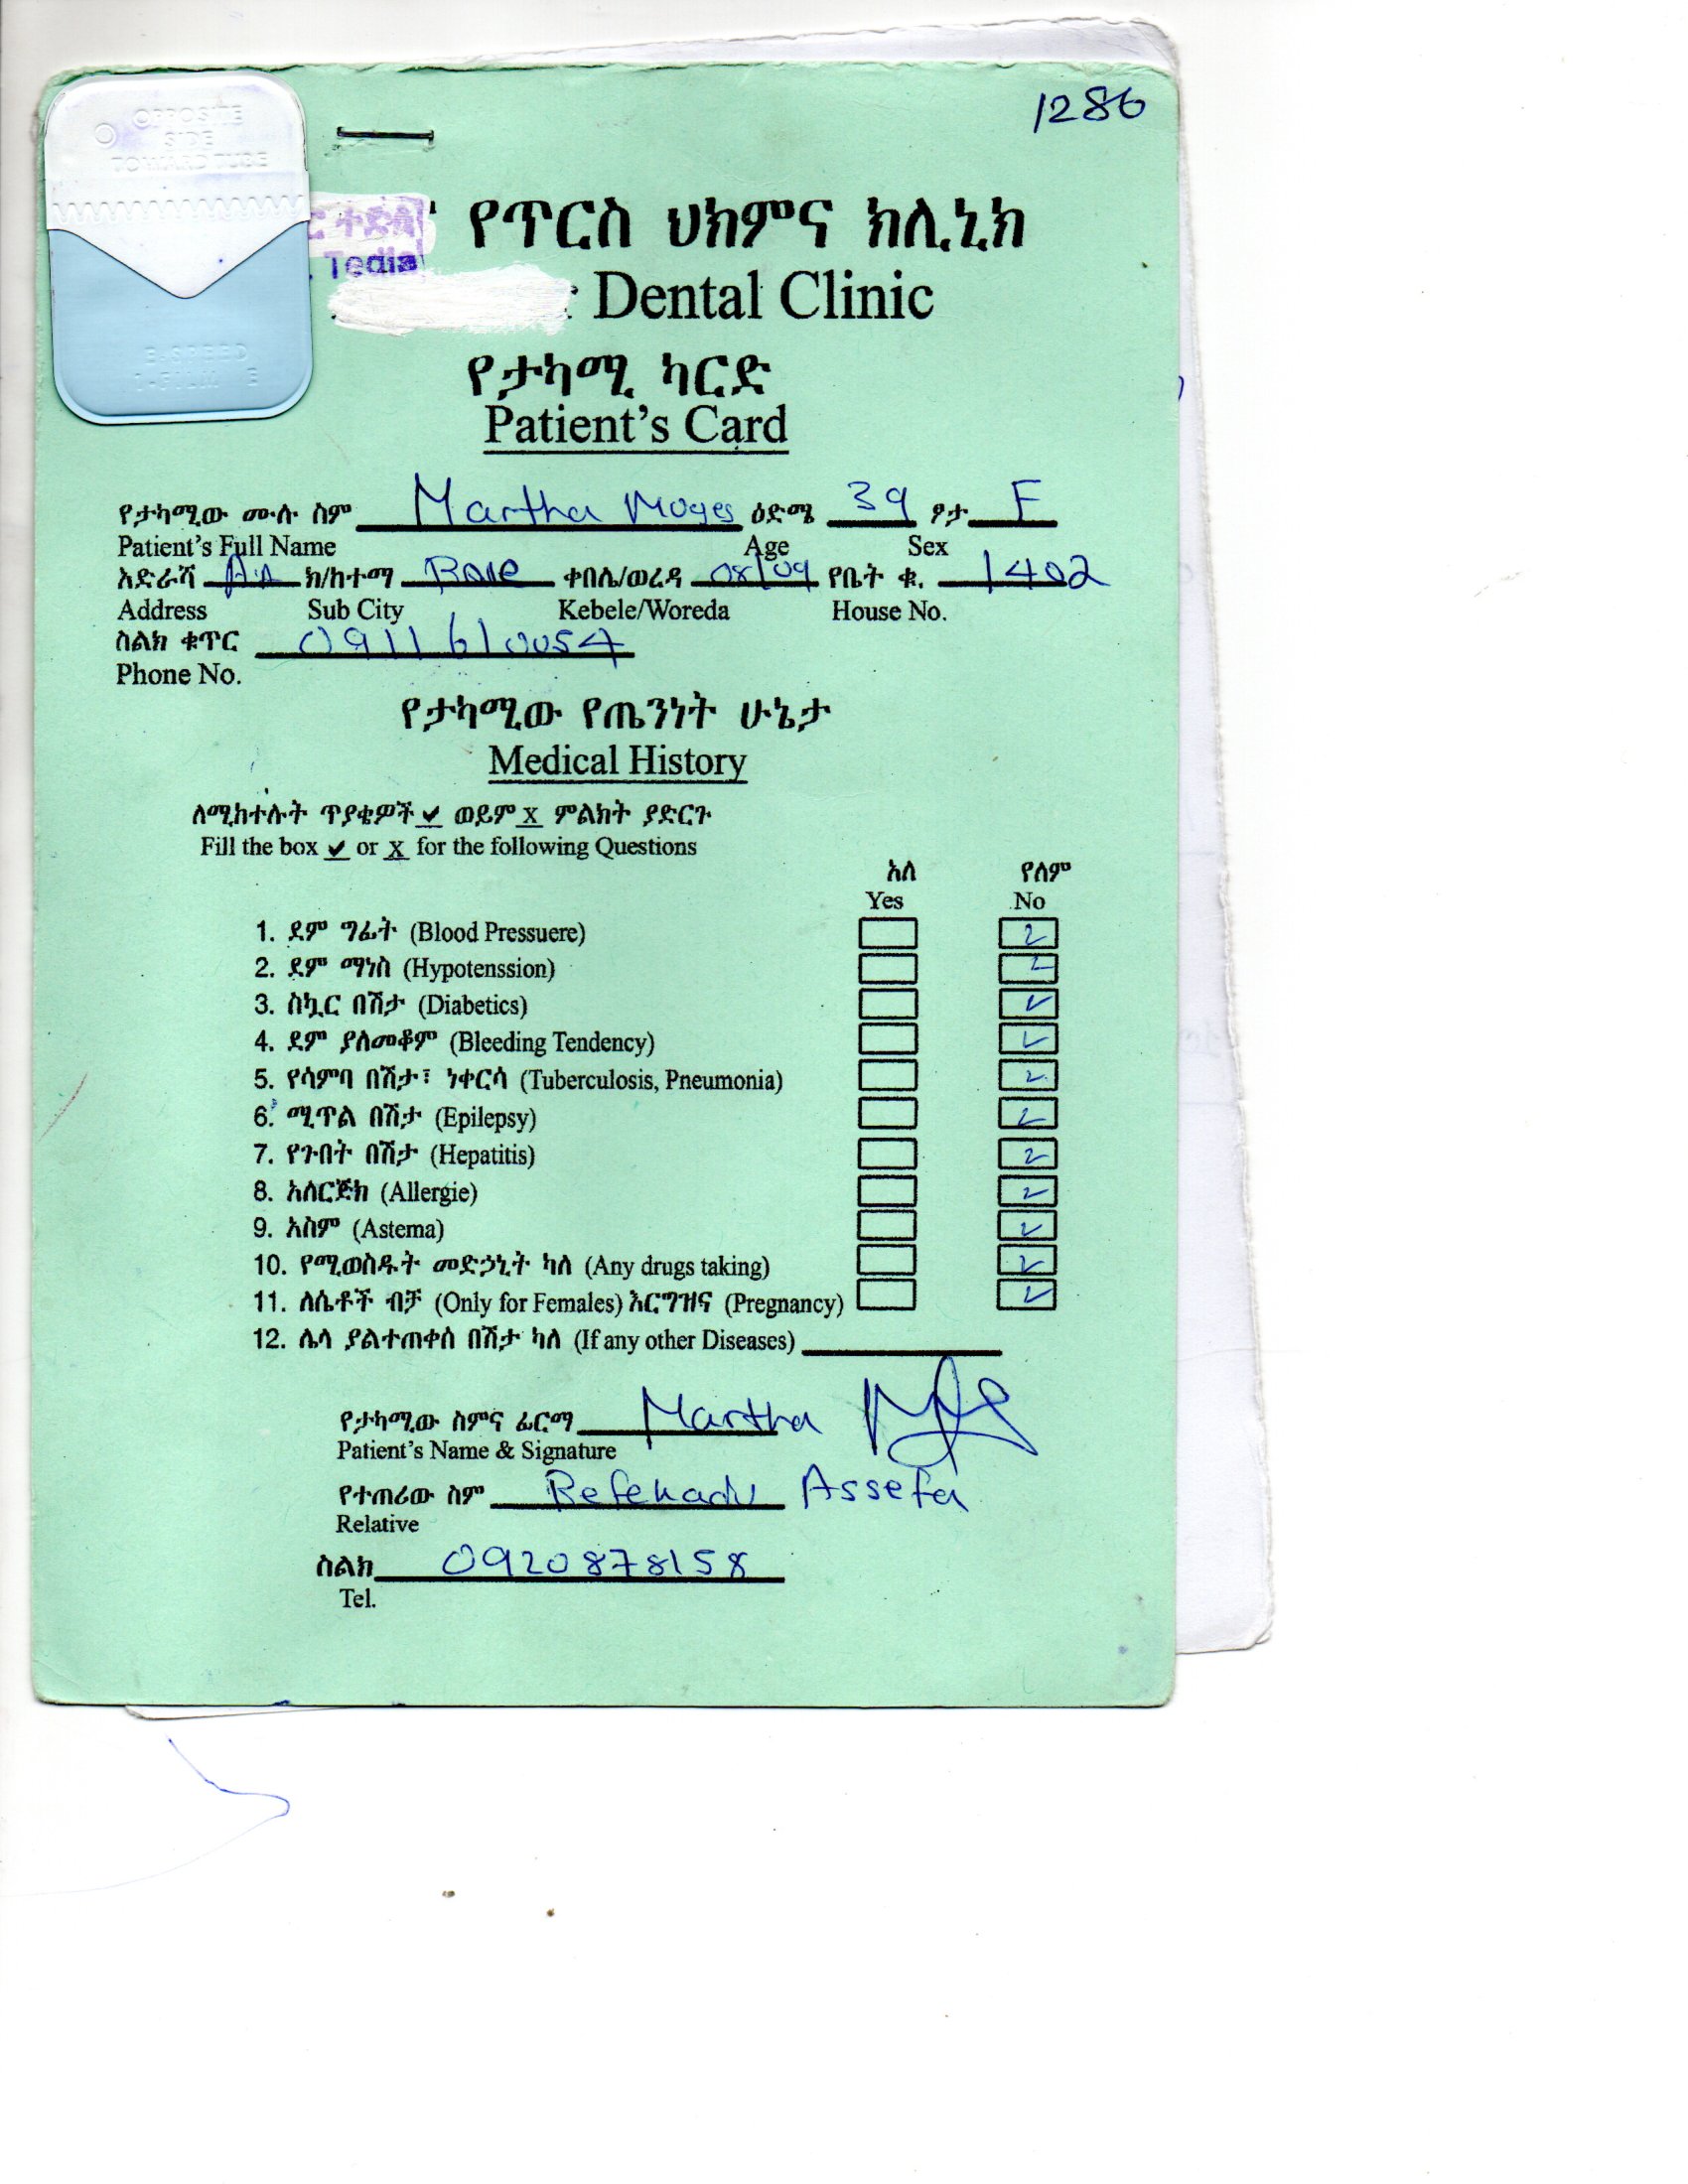 1286
OPPOSITE
SIDE
TOWARD TUBE
ር ተድላ
. Tedla
የጥርስ ህክምና ክሊኒክ
Dental Clinic
የታካሚ ካርድ
Patient's Card
የታካሚው ሙሉ ስም Martha Moges ዕድሜ 39 ፆታ F
Patient's Full Name Age Sex
አድራሻ A.A ክ/ከተማ Bole ቀበሌ/ወረዳ 08/09 የቤት ቁ. 1402
Address Sub City Kebele/Woreda House No.
ስልክ ቁጥር 0911610054
Phone No.
የታካሚው የጤንነት ሁኔታ
Medical History
ለሚከተሉት ጥያቄዎች ✔ ወይም X ምልክት ያድርጉ
Fill the box ✔ or X for the following Questions
አለ የለም
Yes No
1. ደም ግፊት (Blood Pressuere) ✓
2. ደም ማነስ (Hypotenssion) ✓
3. ስኳር በሽታ (Diabetics) ✓
4. ደም ያለመቆም (Bleeding Tendency) ✓
5. የሳምባ በሽታ፣ ነቀርሳ (Tuberculosis, Pneumonia) ✓
6. ሚጥል በሽታ (Epilepsy) ✓
7. የጉበት በሽታ (Hepatitis) ✓
8. አለርጅክ (Allergie) ✓
9. አስም (Astema) ✓
10. የሚወስዱት መድኃኒት ካለ (Any drugs taking) ✓
11. ለሴቶች ብቻ (Only for Females) እርግዝና (Pregnancy) ✓
12. ሌላ ያልተጠቀሰ በሽታ ካለ (If any other Diseases)
የታካሚው ስምና ፊርማ Martha
Patient's Name & Signature
የተጠሪው ስም Befekadu Assefa
Relative
ስልክ 0920878158
Tel.